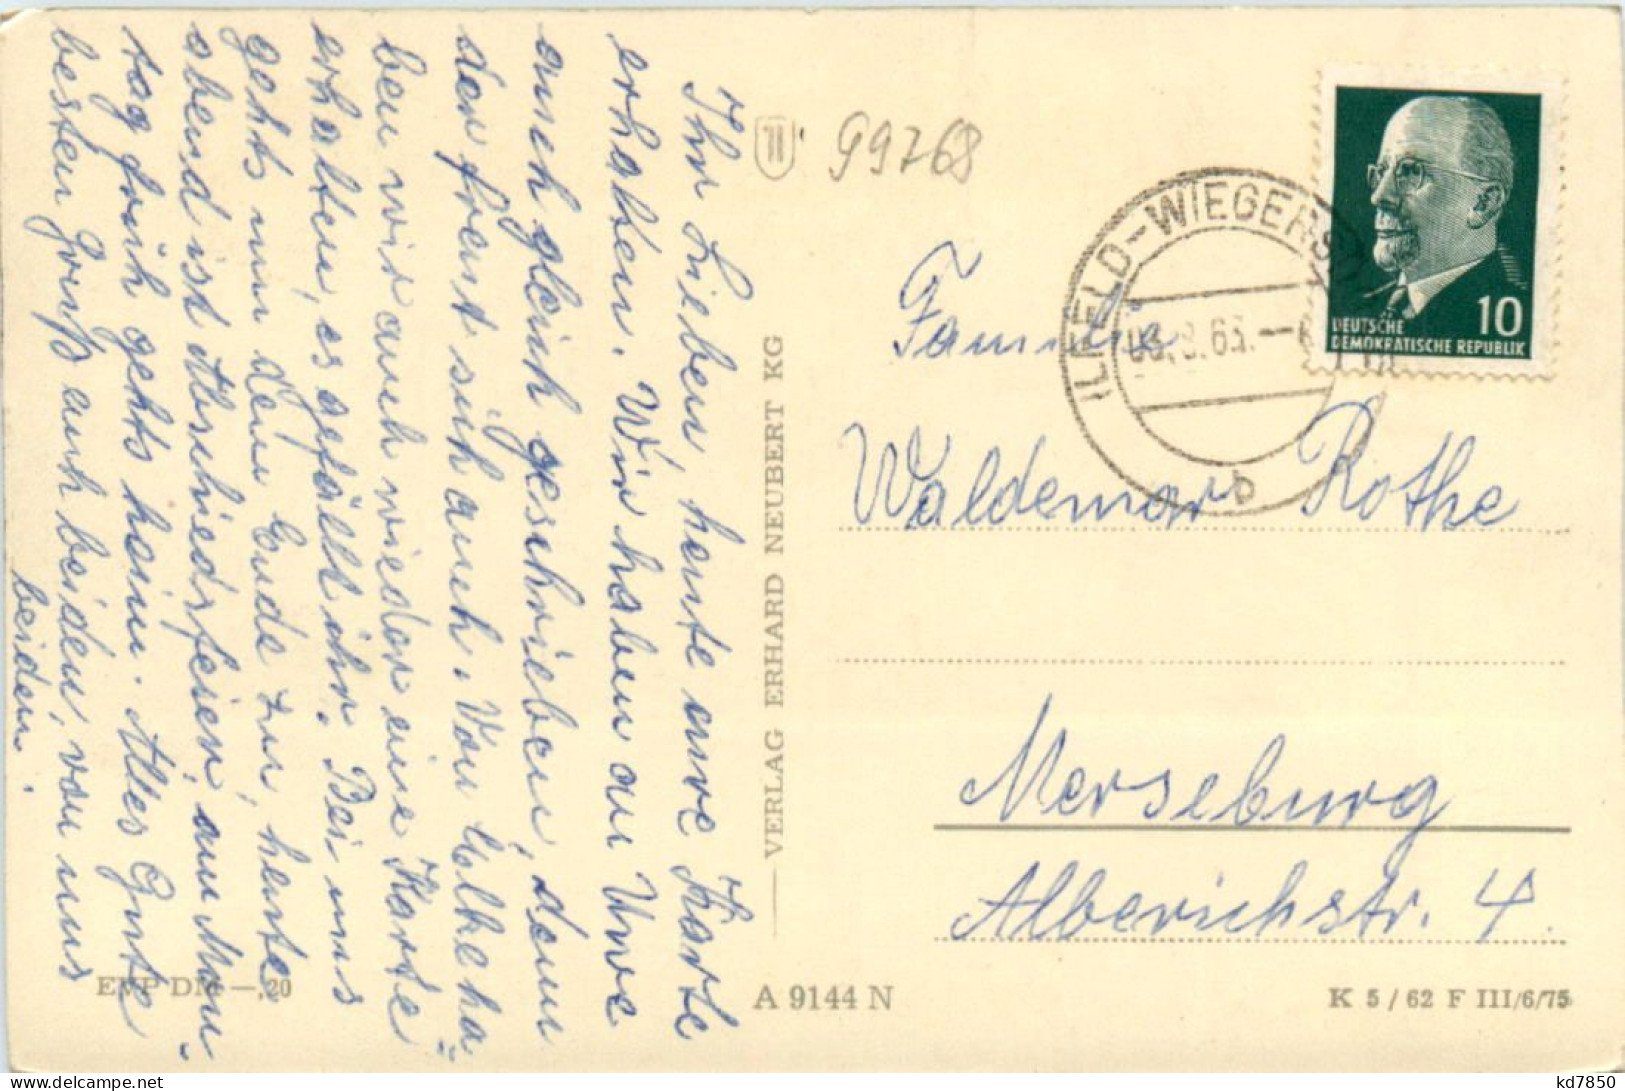 Ihr Lieben, heute eure Karte
erhalten. Wir haben an Uwe
auch gleich geschrieben, denn
der freut sich auch. Von Ulke ha=
ben wir auch wieder eine Karte
erhalten, es gefällt ihr. Bei uns
gehts nun dem Ende zu, heute
abend ist Abschiedsfeier, am Mon=
tag früh gehts heim. Alles Gute
besten Gruß euch beiden, von uns
beiden.
VERLAG ERHARD NEUBERT KG
99768
ILFELD-WIEGERSD
b
10
DEUTSCHE
DEMOKRATISCHE REPUBLIK
Familie
Waldemar Rothe
Merseburg
Alberichstr. 4
EVP DM —,20
A 9144 N
K 5 / 62 F III/6/75
kd7850